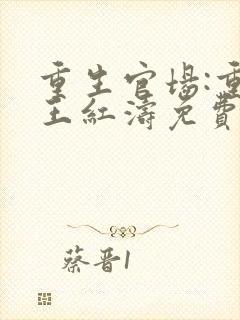 重生官场:重
王紅濤免費
蔡晋1